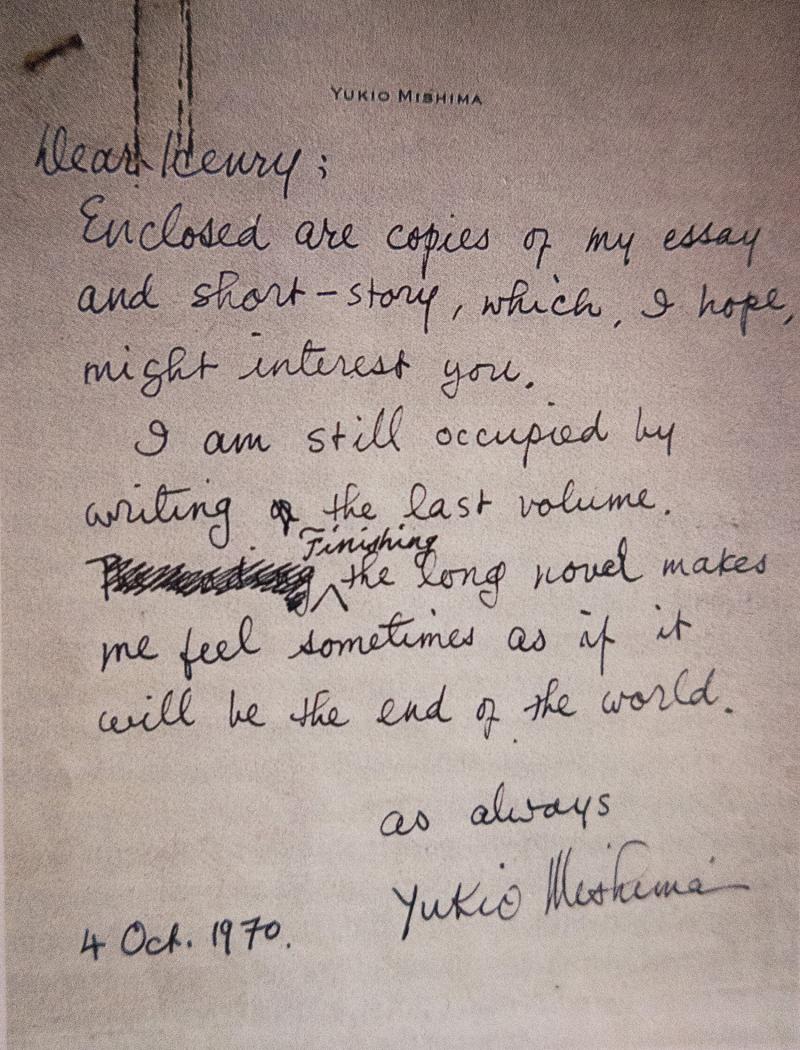 YUKIO MISHIMA
Dear Henry;
Enclosed are copies of my essay
and short-story, which, I hope,
might interest you.
I am still occupied by
writing the last volume.
Finishing
the long novel makes
me feel sometimes as if it
will be the end of the world.
as always
Yukio Mishima
4 Oct. 1970.